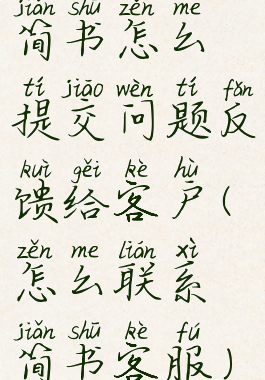 jiǎn shū zěn me
简书怎么
tí jiāo wèn tí fǎn
提交问题反
kuì gěi kè hù
馈给客户（
zěn me lián xì
怎么联系
jiǎn shū kè fú
简书客服）